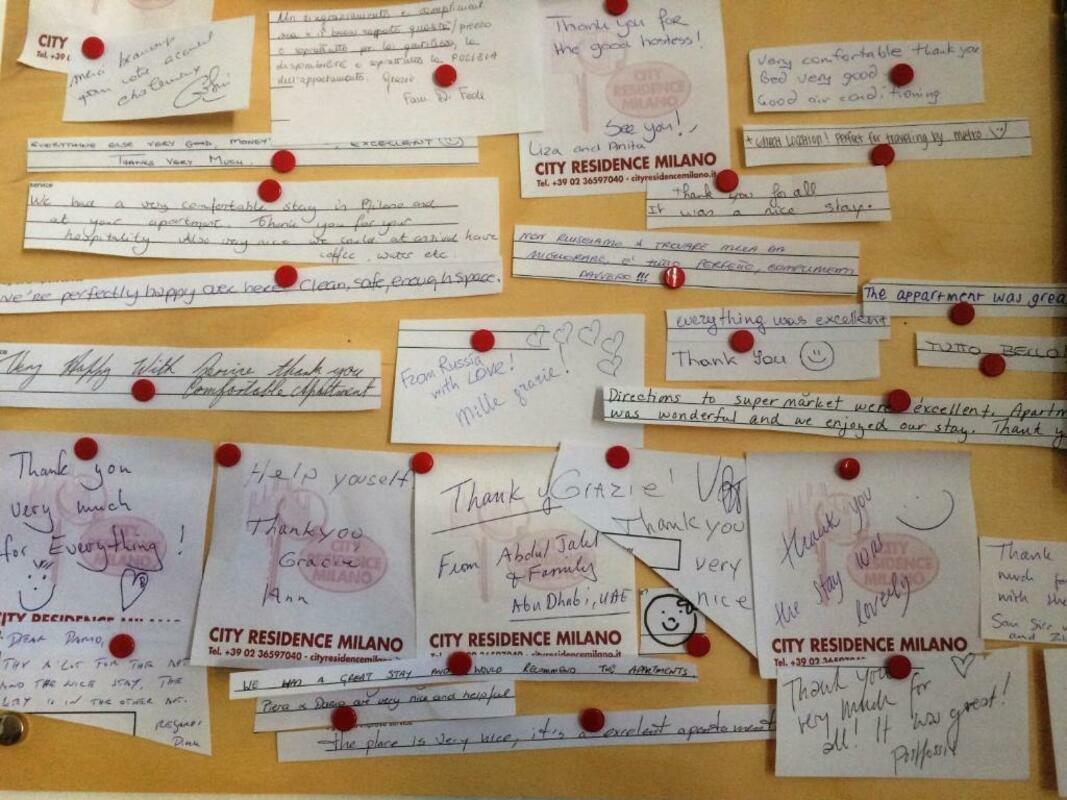 CITY
Tel. +39
Un ringraziamento e complimenti
e soprattutto per la gentilezza, la
disponibilità e soprattutto la PULIZIA
dell'appartamento. Grazie
Fam. Di Fede
Thank you for
the good hostess!
CITY
RESIDENCE
MILANO
See you!
Liza and Anita
CITY RESIDENCE MILANO
Tel. +39 02 36597040 - cityresidencemilano.it
Very comfortable thank you
Bed very good
Good air conditioning
Location! Perfect for traveling by metro
EVERYTHING ELSE VERY GOOD, MONEY
, EXCELLENT
THANKS VERY MUCH.
Thank you for all
It was a nice stay.
service
We had a very comfortable stay in Milano and
at your apartment. Thank you for your
hospitality. Also very nice we could at arrival have
coffee, water etc.
NON RIUSCIAMO A TROVARE NULLA DA
MIGLIORARE, E' TUTTO PERFETTO, COMPLIMENTI
DAVVERO!!!
We're perfectly happy over here. Clean, safe, enough space.
The appartment was grea
everything was excellent
Thank You
TUTTO BELLO
Very Happy With Service thank you
Comfortable Apartment
From Russia
with LOVE!
Mille grazie!
Directions to super market were excellent. Apartm
was wonderful and we enjoyed our stay. Thank y
Thank you
very much
for Everything!
CITY
RESIDENCE
MILANO
CITY RESIDENCE MILANO
Help youself
Thankyou
Grazie
Ann
CITY
RESIDENCE
MILANO
CITY RESIDENCE MILANO
Tel. +39 02 36597040 - cityresidencemilano.it
Thank y
From Abdul Jalel
& Family
Abu Dhabi, UAE
CITY RESIDENCE MILANO
Grazie!
Thank you
very
nice
thank you
the stay was
loverly
CITY
RESIDENCE
MILANO
CITY RESIDENCE MILANO
Tel. +39 02 36597040
Thank
much fo
with the
San Siro
and
DEAR DARIO,
AND THE NICE STAY. THE
IS IN THE OTHER
REGARDS
WE HAD A GREAT STAY AND WOULD RECOMMEND THE APARTMENTS
Piera & Dario are very nice and helpful
the place is very nice, it's a excelent apartament
Thank you
very much for
all! It was great!